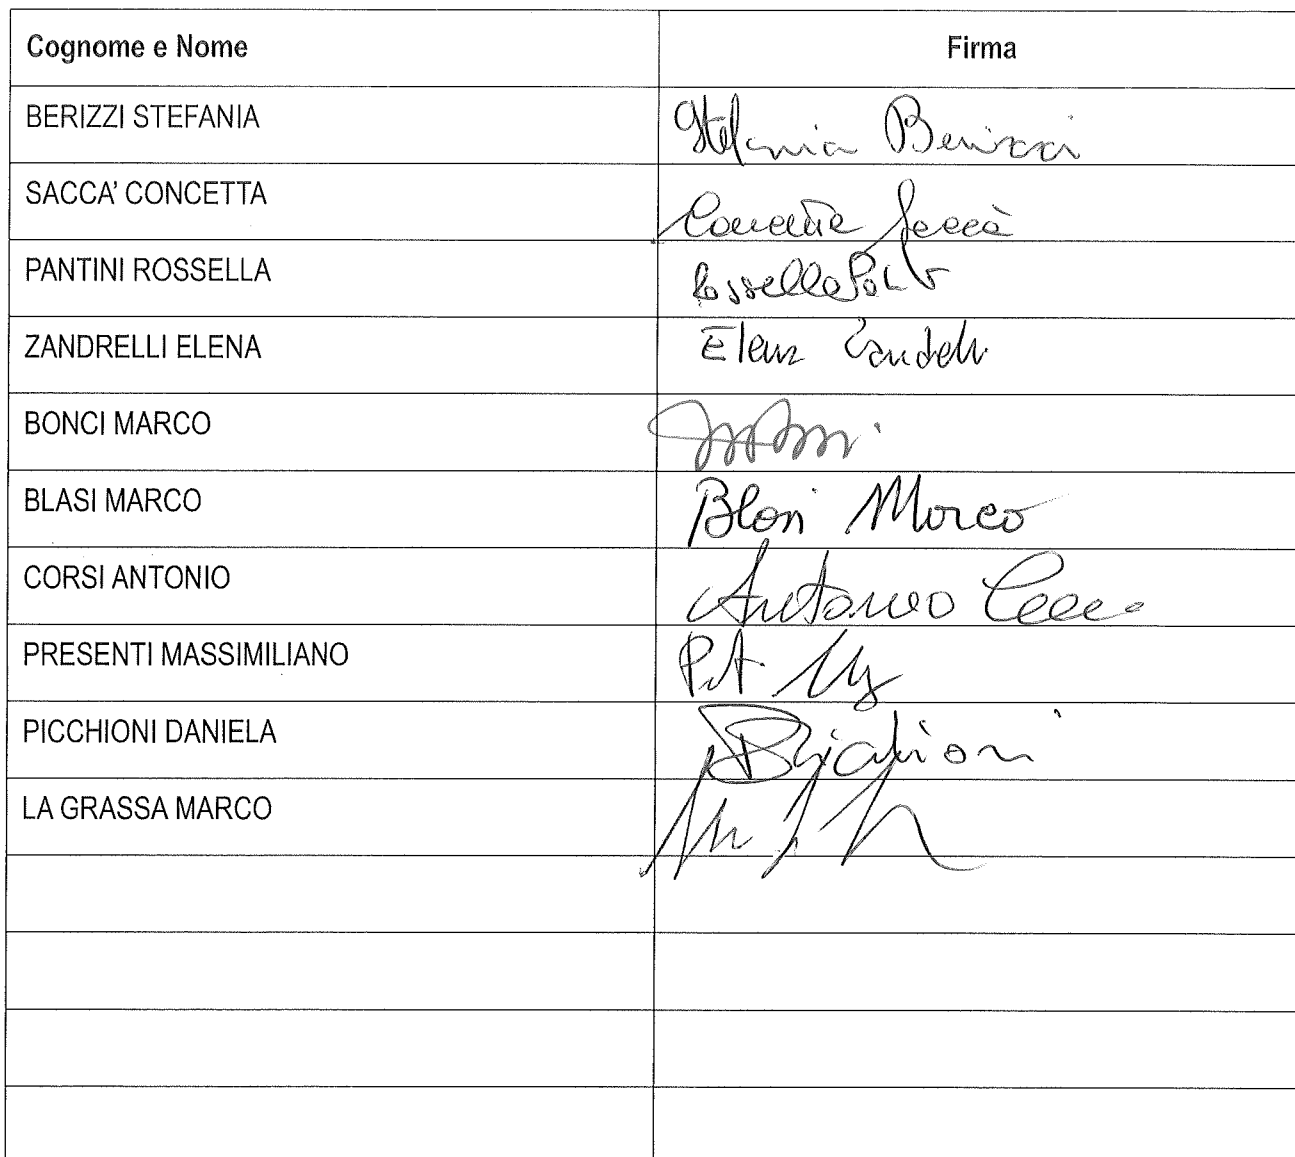 Cognome e Nome Firma
BERIZZI STEFANIA Stefania Berizzi
SACCA' CONCETTA Concetta Saccà
PANTINI ROSSELLA Rossella
ZANDRELLI ELENA Elena
BONCI MARCO
BLASI MARCO Blasi Marco
CORSI ANTONIO Antonio
PRESENTI MASSIMILIANO
PICCHIONI DANIELA
LA GRASSA MARCO